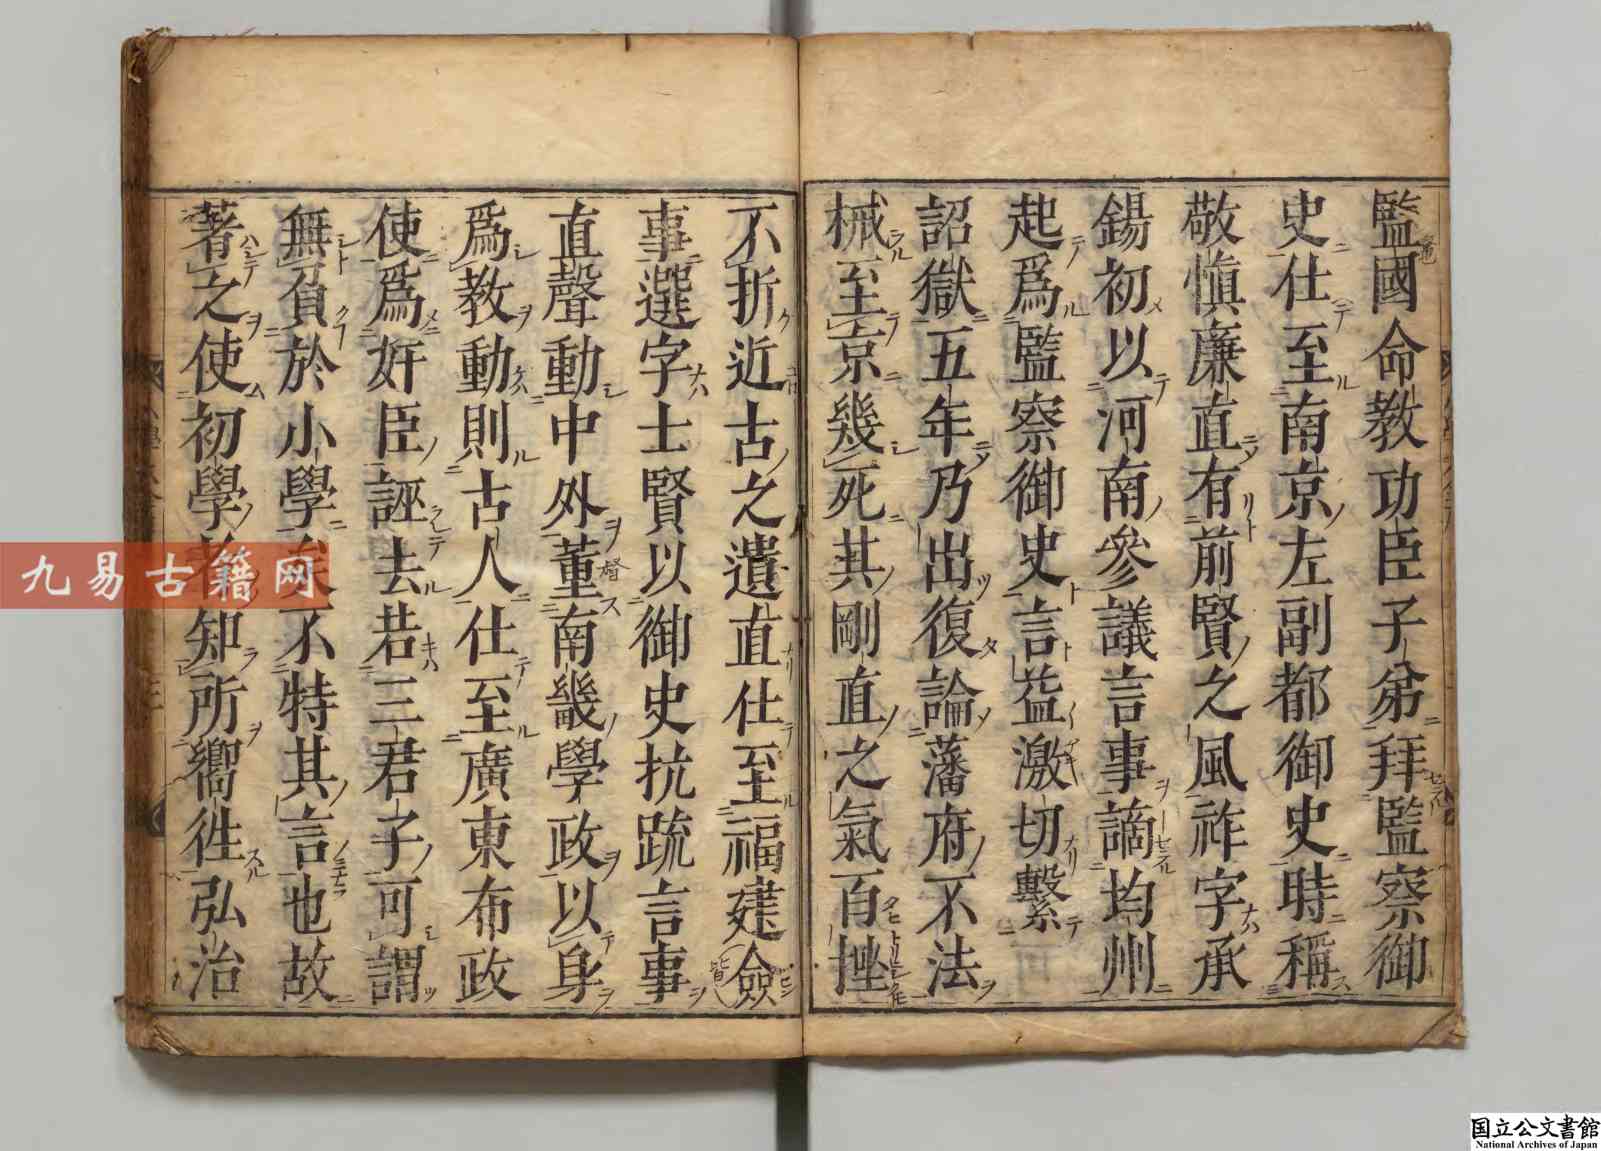 監國命教功臣子弟拜監察御
史仕至南京左副都御史時稱
敬慎廉直有前賢之風祚字承
錫初以河南參議言事謫均州
起爲監察御史言益激切繫
詔獄五年乃出復論藩府不法
械至京幾死其剛直之氣百挫
不折近古之遺直仕至福建僉
事選字士賢以御史抗疏言事
直聲動中外董南畿學政以身
爲教動則古人仕至廣東布政
使爲奸臣誣去若三君子可謂
無負於小學矣不特其言也故
著之使初學者知所嚮徃弘治
九易古籍网
国立公文書館
National Archives of Japan